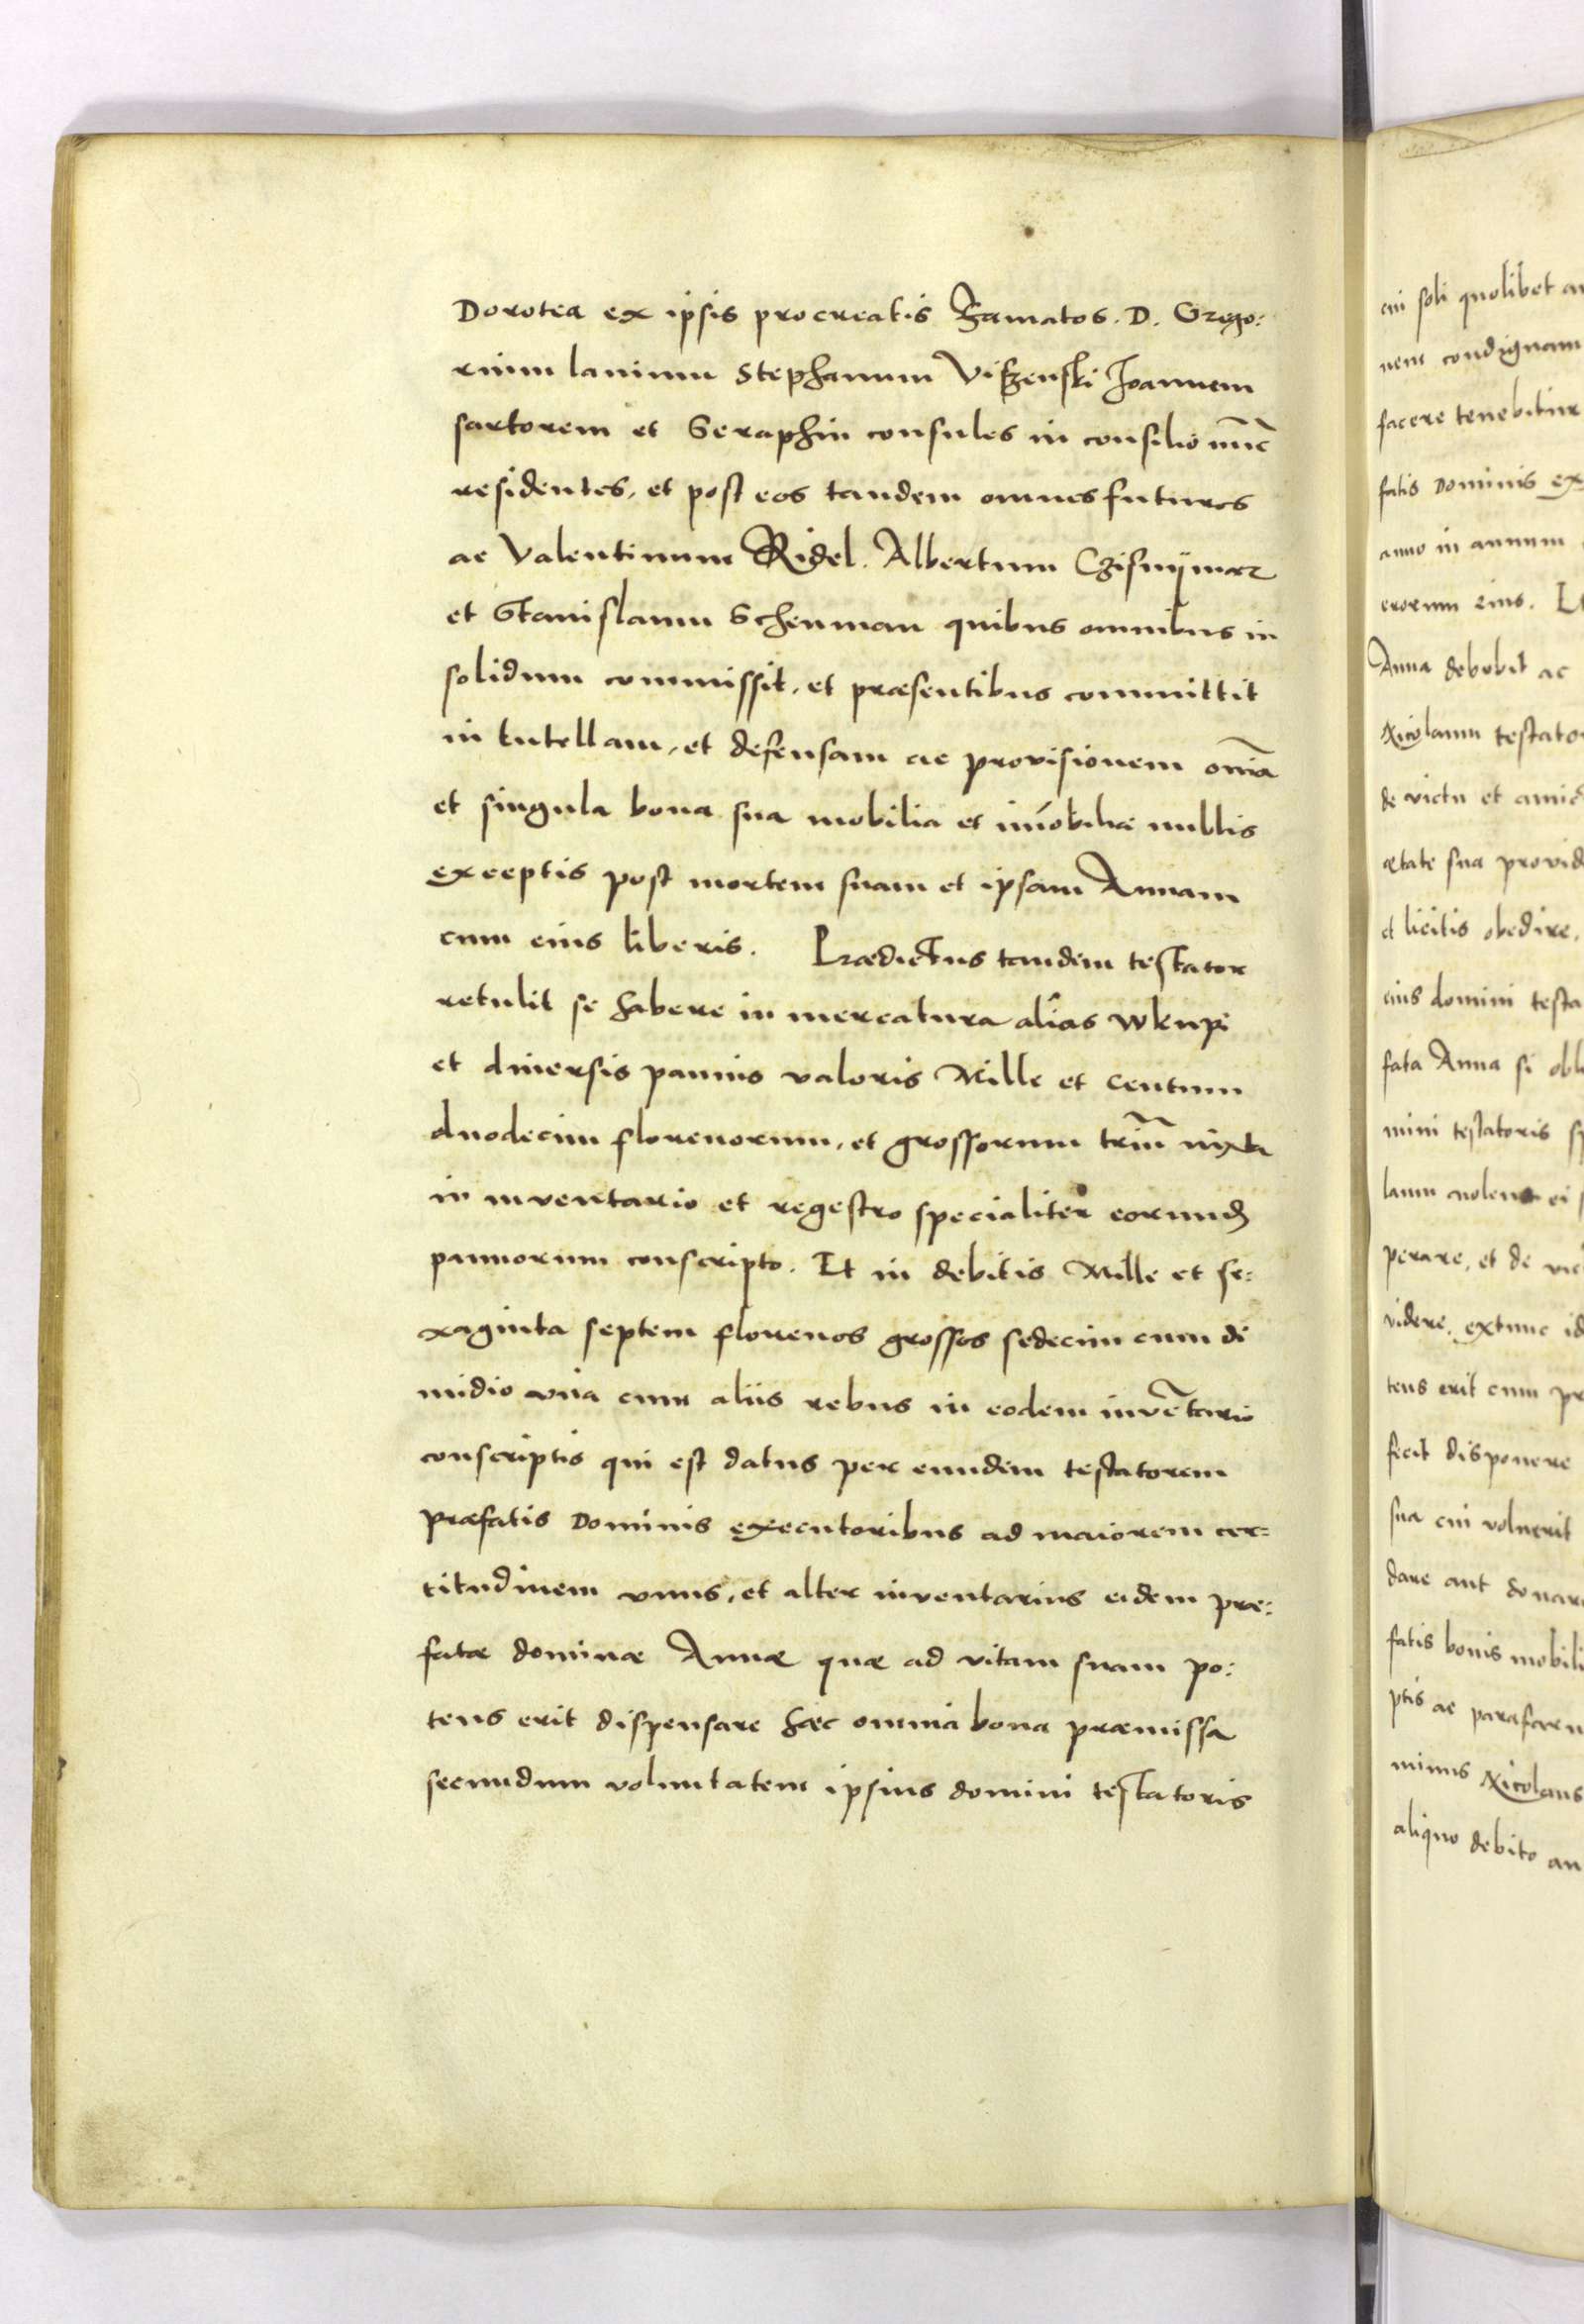 Dorotea ex ipsis procreatis Famatos. D. Grego:
rium lanium Stephanum Viszenski Joannem
sartorem et Seraphin consules in consilio nūc
residentes, et post eos tandem omnes futuros
ac Valentinum Ridel. Albertum
et Stanislaum Schenman quibus omnibus in
solidum commissit, et præsentibus committit
in tutellam, et defensam ac provisionem om̄ia
et singula bona sua mobilia et im̄obilia nullis
exceptis post mortem suam et ipsam Annam
cum eius liberis. Prædictus tandem testator
retulit se habere in mercatura alias wkupi
et diversis pannis valoris Mille et centum
duodecim florenorum, et grossorum triū iuxta
in inventario et regestro specialiter eorund
pannorum conscripto. Et in debitis Mille et se:
xaginta septem florenos grossos sedecim cum di
midio vna cum aliis rebus in eodem invētario
conscriptis qui est datus per eundem testatorem
præfatis Dominis executoribus ad maiorem cer=
titudinem vnus, et alter inventarius eidem præ:
fatæ dominæ Annæ quæ ad vitam suam po:
tens erit dispensare hæc omnia bona præmissa
secundum voluntatem ipsius domini testatoris
cui soli quolibet
nem condignam
facere tenebitur
fatis Dominis ex
anno in annum
erorum eius. Et
Anna debebit ac
Nicolaum testato
de victu et amic
ætate sua provid
et licitis obedire.
eius domini testa
fata Anna si obl
mini testatoris sp
laum nolens ei
perare, et de vic
videre, extunc id
tens erit cum pr
fecit disponere
sua cui voluerit
dare aut donare
fatis bonis mobili
ptis ac parafarn
minus Nicolaus
aliquo debito an